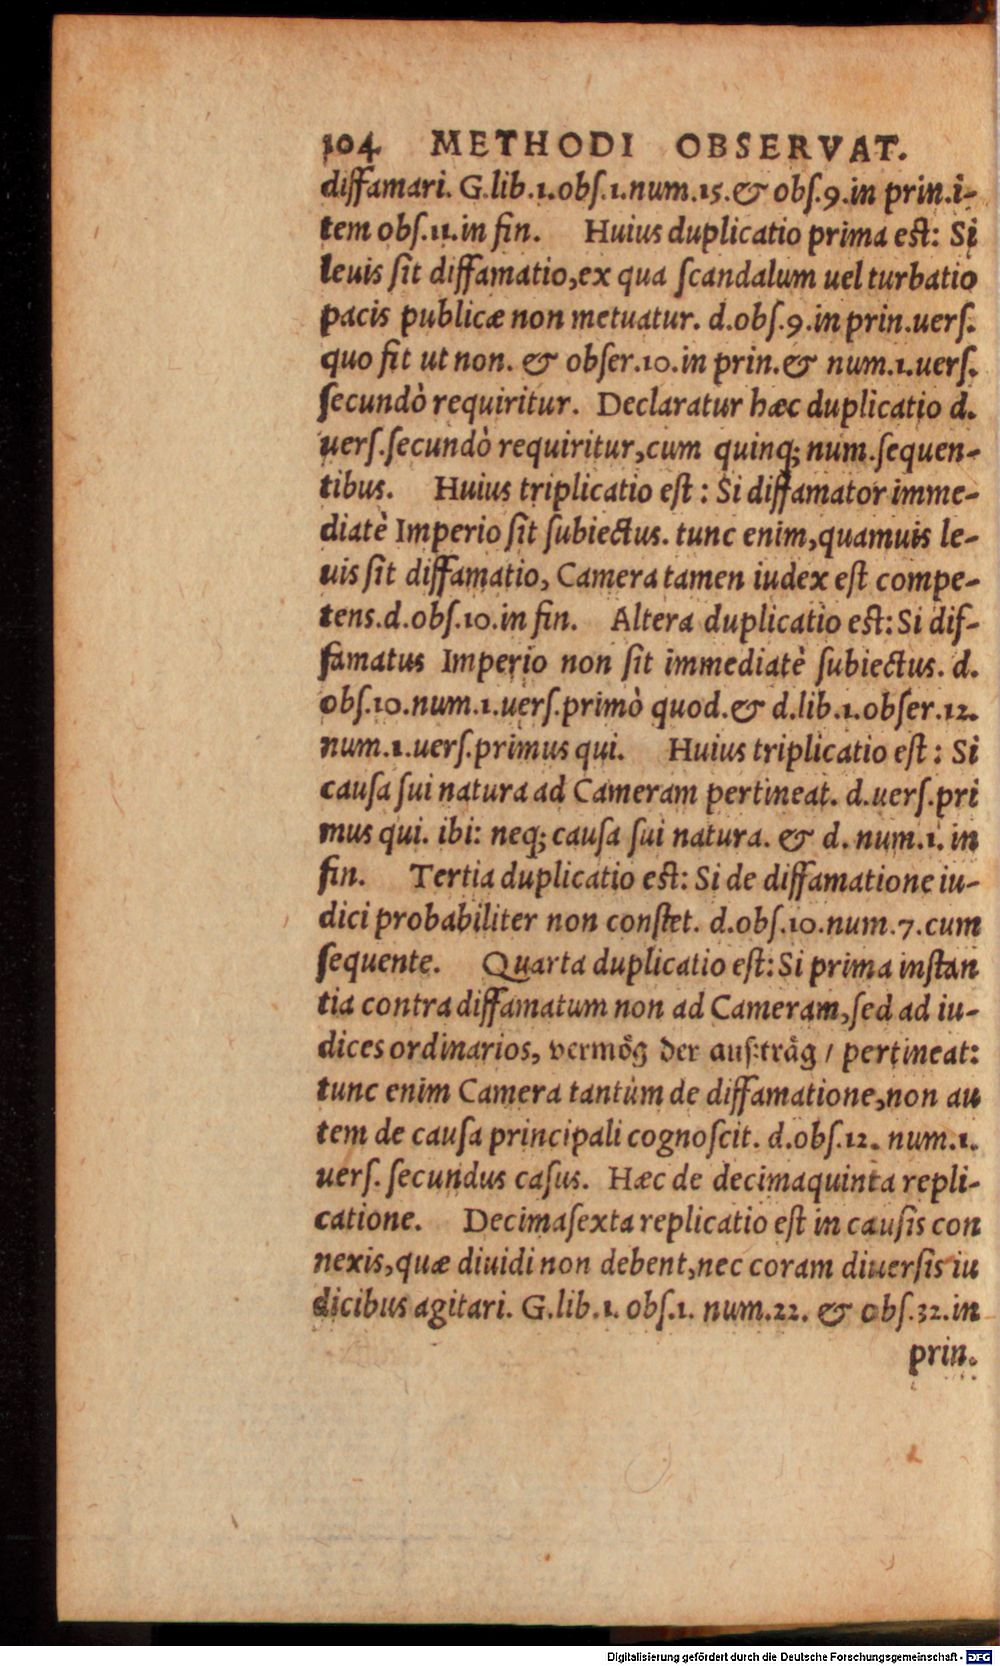 104 METHODI OBSERVAT.
diffamari. G.lib.1.obſ.1.num.15.& obſ.9.in prin.i-
tem obſ.11.in fin. Huius duplicatio prima eſt: Si
leuis ſit diffamatio,ex qua ſcandalum uel turbatio
pacis publicæ non metuatur. d.obſ.9.in prin.uerſ.
quo fit ut non. & obſer.10.in prin.& num.1.uerſ.
ſecundò requiritur. Declaratur hæc duplicatio d.
uerſ.ſecundò requiritur,cum quinq; num.ſequen-
tibus. Huius triplicatio eſt : Si diffamator imme-
diatè Imperio ſit ſubiectus. tunc enim,quamuis le-
uis ſit diffamatio, Camera tamen iudex eſt compe-
tens.d.obſ.10.in fin. Altera duplicatio eſt: Si diſ-
famatus Imperio non ſit immediatè ſubiectus. d.
obſ.10.num.1.uerſ.primò quod.& d.lib.1.obſer.12.
num.1.uerſ.primus qui. Huius triplicatio eſt : Si
cauſa ſui natura ad Cameram pertineat. d.uerſ.pri
mus qui. ibi: neq; cauſa ſui natura. & d. num.1. in
fin. Tertia duplicatio eſt: Si de diffamatione iu-
dici probabiliter non conſtet. d.obſ.10.num.7.cum
ſequente. Quarta duplicatio eſt: Si prima inſtan
tia contra diffamatum non ad Cameram,ſed ad iu-
dices ordinarios, vermög der außträg / pertineat:
tunc enim Camera tantùm de diffamatione,non au
tem de cauſa principali cognoſcit. d.obſ.12. num.1.
uerſ. ſecundus caſus. Hæc de decimaquinta repli-
catione. Decimaſexta replicatio eſt in cauſis con
nexis,quæ diuidi non debent,nec coram diuerſis iu
dicibus agitari. G.lib.1. obſ.1. num.22. & obſ.32.in
prin.
Digitalisierung gefördert durch die Deutsche Forschungsgemeinschaft - DFG